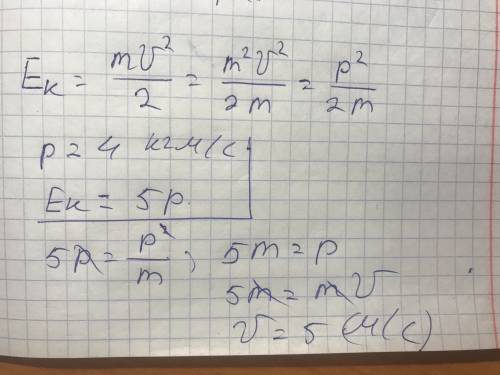 Eк = mv²/2 = m²v²/2m = p²/2m
p = 4 кгм/с
Eк = 5p
5p = p²/m ; 5m = p
5m = mv
v = 5 (м/с)